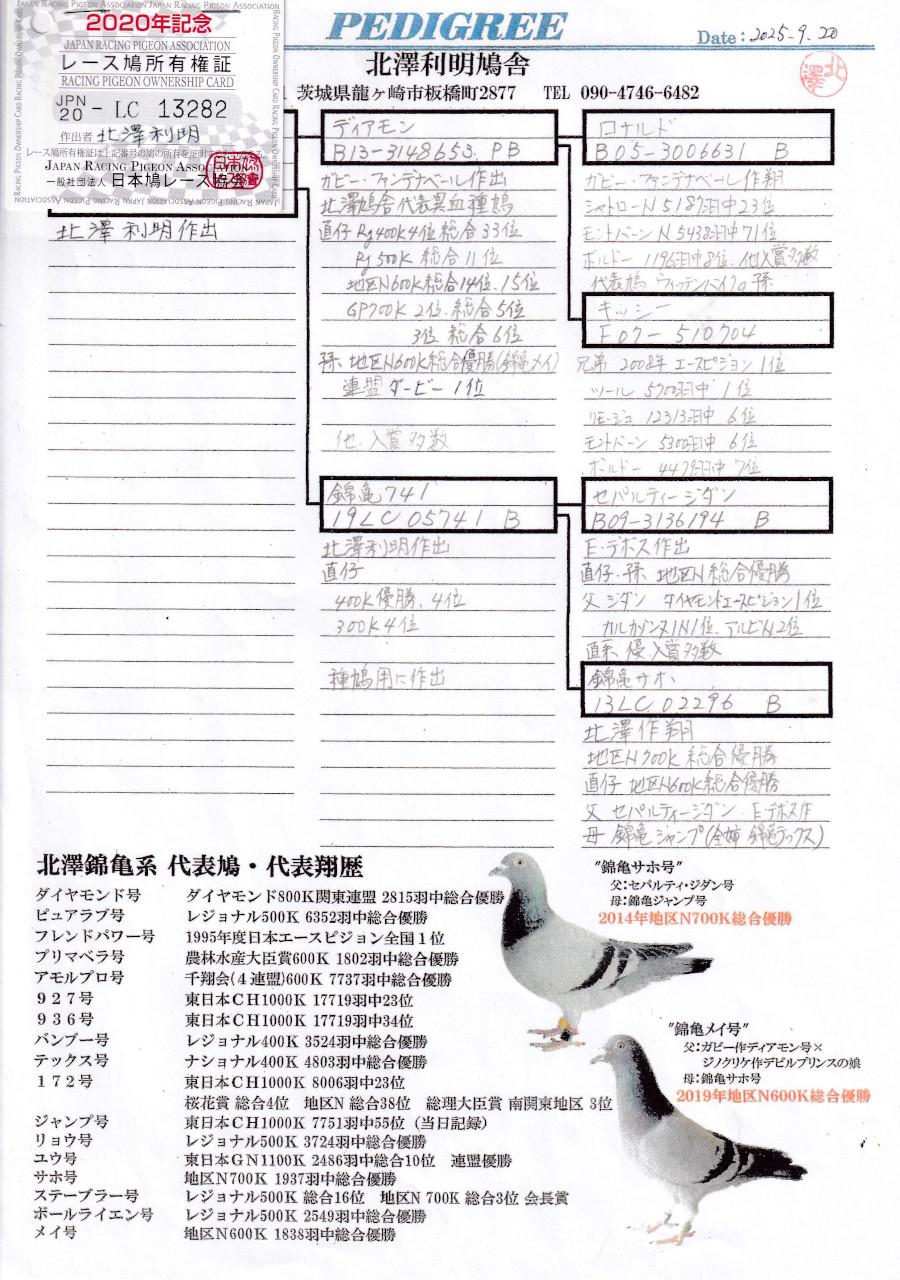 PEDIGREE
Date: 2025-9.20
北澤利明鳩舎
茨城県龍ヶ崎市板橋町2877 TEL 090-4746-6482
北澤
2020年記念
JAPAN RACING PIGEON ASSOCIATION
レース鳩所有権証
RACING PIGEON OWNERSHIP CARD
JPN 20 - LC 13282
作出者 北澤利明
レース鳩所有権証は上記番号の鳩の所有を証明する
JAPAN RACING PIGEON ASSOCIATION
一般社団法人 日本鳩レース協会
北澤利明作出
ディアモン
B13-3148653 PB
ガビー・ファンデナベール作出
北澤鳩舎代表異血種鳩
直仔 Rg400K4位 総合33位
Rg500K 総合11位
地区N600K総合14位、15位
GP700K 2位、総合5位
3位 総合6位
孫、地区N600K総合優勝(錦亀メイ)
連盟ダービー 1位
他、入賞多数
錦亀741
19LC05741 B
北澤利明作出
直仔
400K優勝、4位
300K4位
種鳩用に作出
ロナルド
B05-3006631 B
ガビー・ファンデナベール作翔
シャトローN 5187羽中23位
モントバーンN 5438羽中71位
ボルドー 1196羽中8位、他入賞多数
代表鳩 ヴィッテンバイクの孫
キッシー
F07-510704
兄弟 2008年 エースピジョン1位
ツール 5700羽中 1位
リモージュ 12313羽中 6位
モントバーン 5300羽中 6位
ボルドー 4479羽中 7位
セパルティージダン
B09-3136194 B
E・デボス作出
直仔、孫 地区N総合優勝
父 ジダン ダイヤモンドエースピジョン1位
カルカソンヌIN1位、アルビN2位
直系、優、入賞多数
錦亀サホ
13LC02296 B
北澤作翔
地区N700K 総合優勝
直仔 地区N600K総合優勝
父 セパルティージダン E・デボス作
母 錦亀ジャンプ(全姉 錦亀テックス)
北澤錦亀系 代表鳩・代表翔歴
ダイヤモンド号 ダイヤモンド800K関東連盟 2815羽中総合優勝
ピュアラブ号 レジョナル500K 6352羽中総合優勝
フレンドパワー号 1995年度日本エースピジョン全国1位
プリマベラ号 農林水産大臣賞600K 1802羽中総合優勝
アモルプロ号 千翔会(4連盟)600K 7737羽中総合優勝
927号 東日本CH1000K 17719羽中23位
936号 東日本CH1000K 17719羽中34位
バンブー号 レジョナル400K 3524羽中総合優勝
テックス号 ナショナル400K 4803羽中総合優勝
172号 東日本CH1000K 8006羽中23位
桜花賞 総合4位 地区N 総合38位 総理大臣賞 南関東地区 3位
ジャンプ号 東日本CH1000K 7751羽中55位(当日記録)
リョウ号 レジョナル500K 3724羽中総合優勝
ユウ号 東日本GN1100K 2486羽中総合10位 連盟優勝
サホ号 地区N700K 1937羽中総合優勝
ステーブラー号 レジョナル500K 総合16位 地区N 700K 総合3位 会長賞
ボールライエン号 レジョナル500K 2549羽中総合優勝
メイ号 地区N600K 1838羽中総合優勝
"錦亀サホ号"
父:セパルティ・ジダン号
母:錦亀ジャンプ号
2014年地区N700K総合優勝
"錦亀メイ号"
父:ガビー作ディアモン号×
ジノクリケ作デビルプリンスの娘
母:錦亀サホ号
2019年地区N600K総合優勝